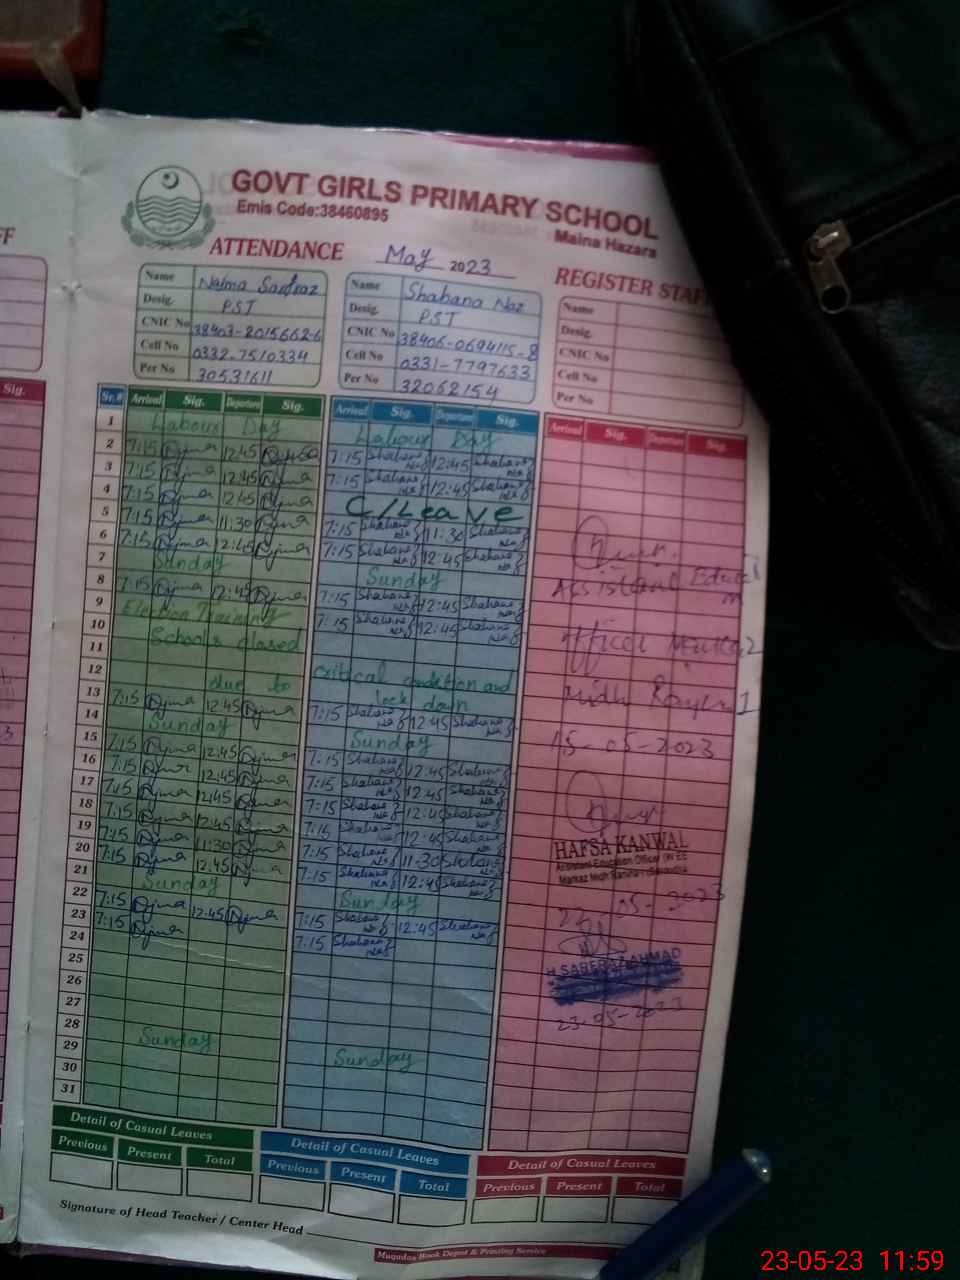 GOVT GIRLS PRIMARY SCHOOL
Emis Code:38460895
Maina Hazara
ATTENDANCE May 2023 REGISTER STAFF
Name Naima Sarfraz
Desig. PST
CNIC No 38403-2015662-6
Cell No 0332-7510334
Per No 30531611
Name Shabana Naz
Desig. PST
CNIC No 38406-0694115-8
Cell No 0331-7797633
Per No 32062154
Name
Desig.
CNIC No
Cell No
Per No
Sr.# Arrival Sig. Departure Sig. Arrival Sig. Departure Sig. Arrival Sig. Departure Sig.
1 Labour Day Labour Day
2 7:15 12:45 7:15 Shabana Naz 12:45 Shabana Naz
3 7:15 12:45 7:15 Shabana Naz 12:45 Shabana Naz
4 7:15 12:45 C/Leave
5 7:15 11:30 7:15 Shabana Naz 11:30 Shabana Naz
6 7:15 12:45 7:15 Shabana Naz 12:45 Shabana Naz
7 Sunday Sunday
8 7:15 12:45 7:15 Shabana Naz 12:45 Shabana Naz
9 Election Training 7:15 Shabana Naz 12:45 Shabana Naz
10 Schools closed
11
12 due to critical condition and
lock down
13 7:15 12:45 7:15 Shabana Naz 12:45 Shabana Naz
14 Sunday Sunday
15 7:15 12:45 7:15 Shabana Naz 12:45 Shabana Naz
16 7:15 12:45 7:15 Shabana Naz 12:45 Shabana Naz
17 7:15 12:45 7:15 Shabana Naz 12:45 Shabana Naz
18 7:15 12:45 7:15 Shabana Naz 12:45 Shabana Naz
19 7:15 11:30 7:15 Shabana Naz 11:30 Shabana Naz
20 7:15 12:45 7:15 Shabana Naz 12:45 Shabana Naz
21 Sunday Sunday
22 7:15 12:45 7:15 Shabana Naz 12:45 Shabana Naz
23 7:15 7:15 Shabana Naz
24
25
26
27
28 Sunday Sunday
29
30
31
Assistant Education
Officer
Midh
15-05-2023
HAFSA KANWAL
Assistant Education Officer (W-EE
Markaz Midh Ranjha
05-2023
AHMAD
23-05-2023
Detail of Casual Leaves
Previous Present Total
Detail of Casual Leaves
Previous Present Total
Detail of Casual Leaves
Previous Present Total
Signature of Head Teacher / Center Head
Muqadas Book Depot & Printing Service
Sig.
23-05-23 11:59